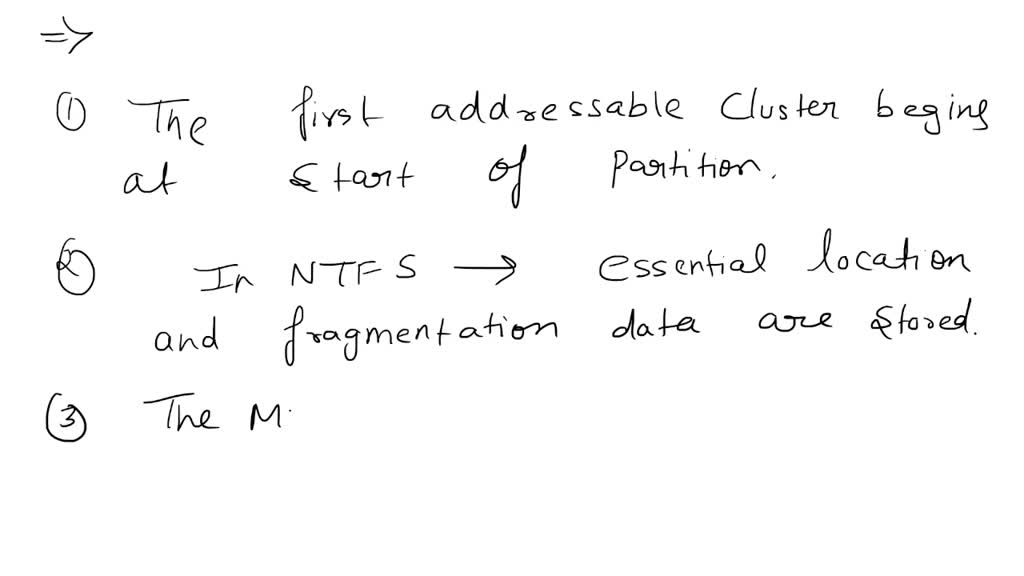 ⇒
① The first addressable Cluster begins
at start of partition.
② In NTFS → essential location
and fragmentation data are stored.
③ The M